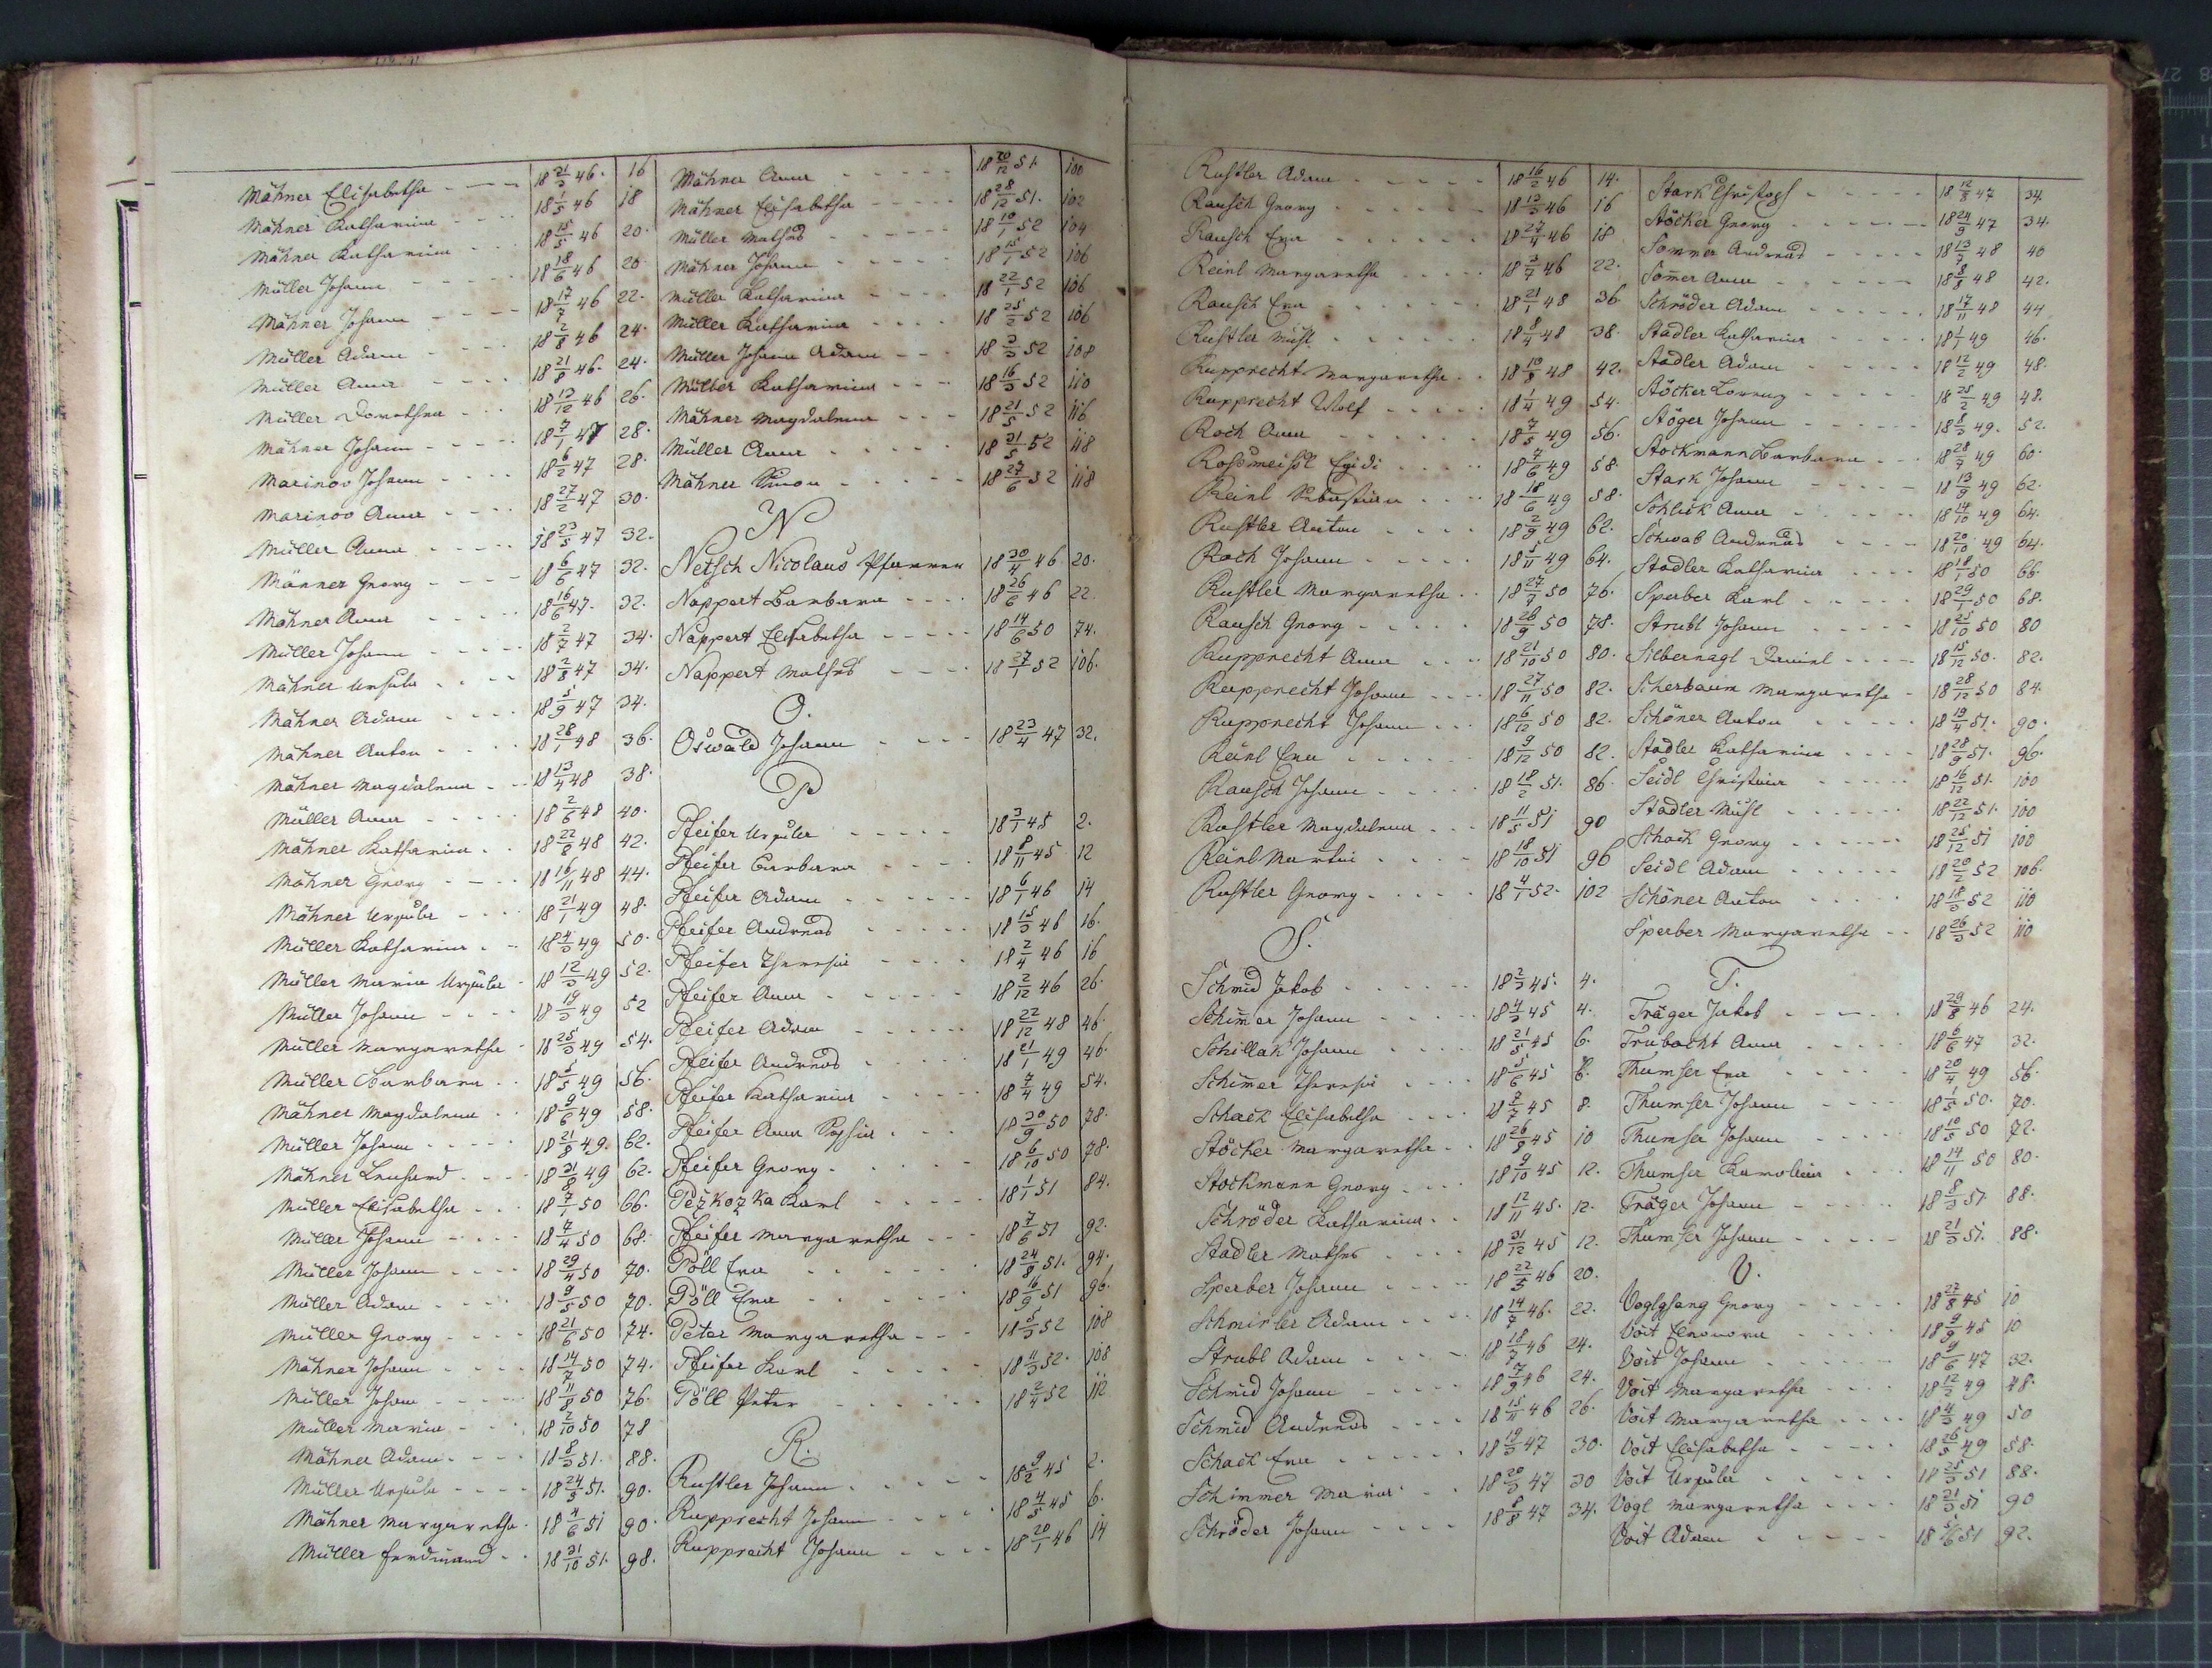 Mähner Elisabetha - - - 18 21/3 46. 16
Mähner Katharina - - - 18 1/5 46 18
Mähner Katharina - - - 18 15/5 46 20.
Müller Johann - - - 18 18/6 46 20.
Mähner Johann - - - 18 17/7 46 22.
Müller Adam - - - 18 2/8 46 24.
Müller Anna - - - 18 21/8 46. 24.
Müller Dorothea - - - 18 13/12 46 26.
Mähner Johann - - - 18 7/1 47 28.
Marinoo Johann - - - 18 6/2 47 28.
Marinoo Anna - - - 18 27/2 47 30.
Müller Anna - - - 18 23/5 47 32.
Männer Georg - - - 18 6/6 47 32.
Mähner Anna - - - 18 16/6 47. 32.
Müller Johann - - - 18 2/7 47 34.
Mähner Ursula - - - 18 2/8 47 34.
Mähner Adam - - - 18 5/9 47 34.
Mähner Anton - - - 18 28/1 48 36.
Mähner Magdalena - - 18 13/4 48 38.
Müller Anna - - - 18 2/6 48 40.
Mähner Katharina - - 18 22/8 48 42.
Mähner Georg - - - 18 16/11 48 44.
Mähner Ursula - - - 18 21/1 49 48.
Müller Katharina - - 18 4/3 49 50.
Müller Maria Ursula - 18 12/3 49 52.
Müller Johann - - - 18 19/3 49 52
Müller Margaretha - 18 25/3 49 54.
Müller Barbara - - 18 5/5 49 56.
Mähner Magdalena - - 18 9/6 49 58.
Müller Johann - - - 18 21/8 49. 62.
Mähner Lenhard - - - 18 31/8 49 62.
Müller Elisabetha - - - 18 7/1 50 66.
Müller Johann - - - 18 4/4 50 68.
Müller Johann - - - 18 29/4 50 70.
Müller Adam - - - 18 9/5 50 70.
Müller Georg - - - 18 21/6 50 74.
Mähner Johann - - - 18 14/7 50 74.
Müller Johann - - - 18 11/8 50 76.
Müller Maria - - - 18 2/10 50 78
Mähner Adam - - - 18 8/3 51. 88.
Müller Ursula - - - 18 24/5 51. 90.
Mähner Margaretha - 18 4/6 51 90.
Müller Ferdinand - - 18 31/10 51. 98.
Mähner Anna - - - 18 20/12 51. 100
Mähner Elisabetha - - - 18 28/12 51. 102
Müller Mathes - - - 18 10/1 52 104
Mähner Johann - - - 18 15/1 52 106
Müller Katharina - - - 18 22/1 52 106
Müller Katharina - - - 18 25/2 52 106
Müller Johann Adam - - - 18 3/3 52 108
Müller Katharina - - - 18 16/3 52 110
Mähner Magdalena - - - 18 21/5 52 116
Müller Anna - - - 18 31/5 52 118
Mähner Simon - - - 18 27/6 52 118
N
Netsch Nicolaus Pfarrer 18 30/4 46 20.
Nappert Barbara - - - 18 26/6 46 22.
Nappert Elisabetha - - - 18 14/6 50 74.
Nappert Mathes - - - 18 27/1 52 106.
O.
Oswald Johann - - - 18 23/4 47 32.
P
Pfeifer Ursula - - - 18 3/1 45 2.
Pfeifer Barbara - - - 18 8/11 45 12
Pfeifer Adam - - - 18 6/1 46 14
Pfeifer Andreas - - - 18 15/3 46 16.
Pfeifer Theresia - - - 18 2/4 46 16
Pfeifer Anna - - - 18 2/12 46 26.
Pfeifer Adam - - - 18 22/12 48 46.
Pfeifer Andreas - - - 18 21/1 49 46.
Pfeifer Katharina - - - 18 7/4 49 54.
Pfeifer Anna Sophia - - - 18 30/9 50 78.
Pfeifer Georg - - - 18 6/10 50 78.
Pezkozka Karl - - - 18 1/1 51 84.
Pfeifer Margaretha - - - 18 7/6 51 92.
Pöll Eva - - - 18 24/8 51. 94.
Pöll Eva - - - 18 16/9 51 96.
Peter Margaretha - - - 18 5/3 52 108
Pfeifer Karl - - - 18 11/3 52. 108
Pöll Peter - - - 18 2/4 52 112
R.
Rustler Johann - - - 18 9/2 45 2.
Rupprecht Johann - - - 18 4/5 45 6.
Rupprecht Johann - - - 18 20/1 46 14
Rustler Adam - - - 18 16/2 46 14.
Rausch Georg - - - 18 13/3 46 16
Rausch Eva - - - 18 27/4 46 18
Reinl Margaretha - - - 18 3/7 46 22.
Rausch Eva - - - 18 21/1 48 36.
Rustler Michl - - - 18 8/4 48 38.
Rupprecht Margaretha - - 18 10/8 48 42.
Rupprecht Wolf - - - 18 1/4 49 54.
Roch Anna - - - 18 7/5 49 56.
Rossmeisl Egidi - - - 18 7/6 49 58.
Reinl Sebastian - - - 18 18/6 49 58.
Rustler Anton - - - 18 2/9 49 62.
Roch Johann - - - 18 5/11 49 64.
Rustler Margaretha - - 18 27/7 50 76.
Rausch Georg - - - 18 28/9 50 78.
Rupprecht Anna - - - 18 21/10 50 80.
Rupprecht Johann - - - 18 27/11 50 82.
Rupprecht Johann - - - 18 6/12 50 82.
Reinl Eva - - - 18 9/12 50 82.
Rausch Johann - - - 18 18/2 51. 86.
Rustler Magdalena - - - 18 11/5 51 90
Reinl Martin - - - 18 18/10 51 96
Rustler Georg - - - 18 4/1 52. 102
S.
Schmid Jakob - - - 18 2/3 45. 4.
Schimmer Johann - - - 18 4/3 45 4.
Schillak Johann - - - 18 21/5 45 6.
Schimmer Theresia - - - 18 5/6 45 8.
Schack Elisabetha - - - 18 2/7 45 8.
Stöcker Margaretha - - 18 26/8 45 10
Stockmann Georg - - - 18 9/10 45 12.
Schröder Katharina - - 18 12/11 45. 12.
Stadler Mathes - - - 18 31/12 45 12.
Sperber Johann - - - 18 22/5 46 20.
Schmirler Adam - - - 18 14/7 46. 22.
Strubl Adam - - - 18 18/7 46 24.
Schmid Johann - - - 18 7/9 46 24.
Schmid Andreas - - - 18 15/11 46 26.
Schack Eva - - - 18 19/3 47 30.
Schimmer Maria - - 18 20/3 47 30
Schröder Johann - - - 18 8/8 47 34.
Stark Christoph - - - 18 12/8 47 34.
Stöcker Georg - - - 18 24/9 47 34.
Sommer Andreas - - - 18 13/7 48 40
Sommer Anna - - - 18 8/8 48 42.
Schröder Adam - - - 18 17/11 48 44
Stadler Katharina - - - 18 1/1 49 46.
Stadler Adam - - - 18 12/2 49 48.
Stöcker Lorenz - - - 18 25/2 49 48.
Stöger Johann - - - 18 8/3 49. 52.
Stockmann Barbara - - - 18 28/7 49 60.
Stark Johann - - - 18 13/9 49 62.
Schlick Anna - - - 18 14/10 49 64.
Schwab Andreas - - - 18 20/10 49 64.
Stadler Katharina - - - 18 18/1 50 66.
Sperber Karl - - - 18 29/1 50 68.
Strubl Johann - - - 18 25/10 50 80
Silbernagl Daniel - - - 18 15/12 50. 82.
Scherbaum Margaretha - 18 28/12 50 84.
Schöner Anton - - - 18 19/4 51. 90.
Stadler Katharina - - - 18 28/9 51. 96.
Seidl Christina - - - 18 16/12 51. 100
Stadler Michl - - - 18 22/12 51. 100
Schack Georg - - - 18 25/12 51 100
Seidl Adam - - - 18 20/2 52 106.
Schöner Anton - - - 18 18/3 52 110
Sperber Margaretha - - 18 26/3 52 110
T.
Träger Jakob - - - 18 29/8 46 24.
Trubacht Anna - - - 18 6/6 47 32.
Thumser Eva - - - 18 20/4 49 56.
Thumser Johann - - - 18 1/5 50. 70.
Thumser Johann - - - 18 10/5 50 72.
Thumser Karolina - - - 18 14/11 50 80.
Träger Johann - - - 18 8/3 51. 88.
Thumser Johann - - - 18 21/3 51. 88.
V.
Voglgsang Georg - - - 18 27/8 45 10
Voit Eleonora - - - 18 9/9 45 10
Voit Johann - - - 18 9/6 47 32.
Voit Margaretha - - - 18 12/2 49 48.
Voit Margaretha - - - 18 4/3 49 50
Voit Elisabetha - - - 18 26/5 49 58.
Voit Ursula - - - 18 25/3 51 88.
Vogl Margaretha - - - 18 21/3 51 90
Voit Adam - - - 18 5/6 51 92.